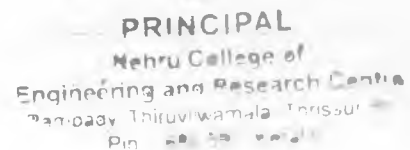 PRINCIPAL
Nehru College of
Engineering and Research Centre
Pampady Thiruvilwamala Thrissur
Pin